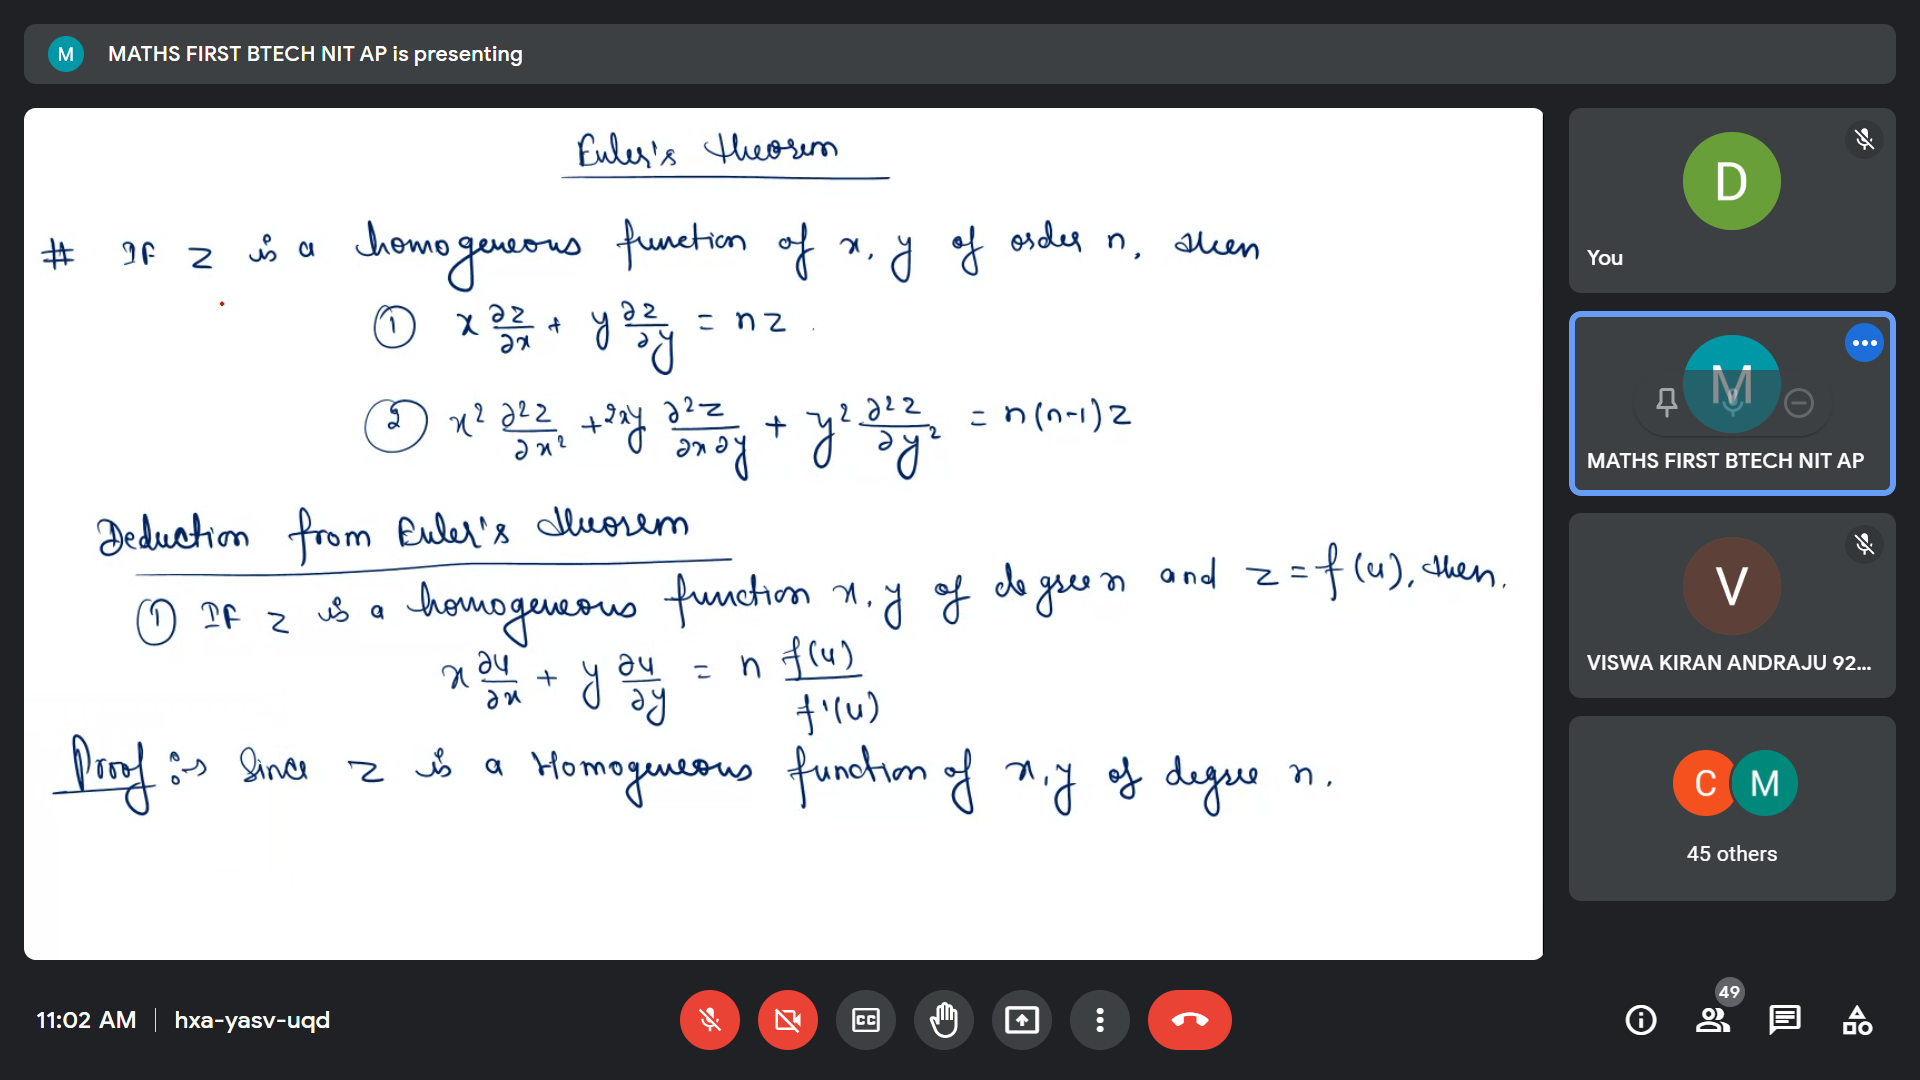 M MATHS FIRST BTECH NIT AP is presenting
Euler's theorem
# If z is a homogeneous function of x, y of order n, then
① x ∂z/∂x + y ∂z/∂y = nz
② x² ∂²z/∂x² + 2xy ∂²z/∂x∂y + y² ∂²z/∂y² = n(n-1)z
Deduction from Euler's theorem
① If z is a homogeneous function x, y of degree n and z = f(u), then,
x ∂u/∂x + y ∂u/∂y = n f(u)/f'(u)
Proof :→ Since z is a Homogeneous function of x, y of degree n.
D
You
M
MATHS FIRST BTECH NIT AP
V
VISWA KIRAN ANDRAJU 92...
C M
45 others
11:02 AM | hxa-yasv-uqd
CC
49